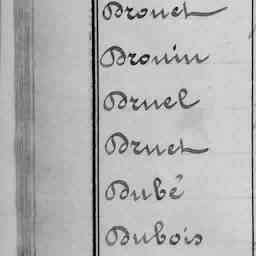 Drouet
Drouin
Druel
Druet
Dubé
Dubois